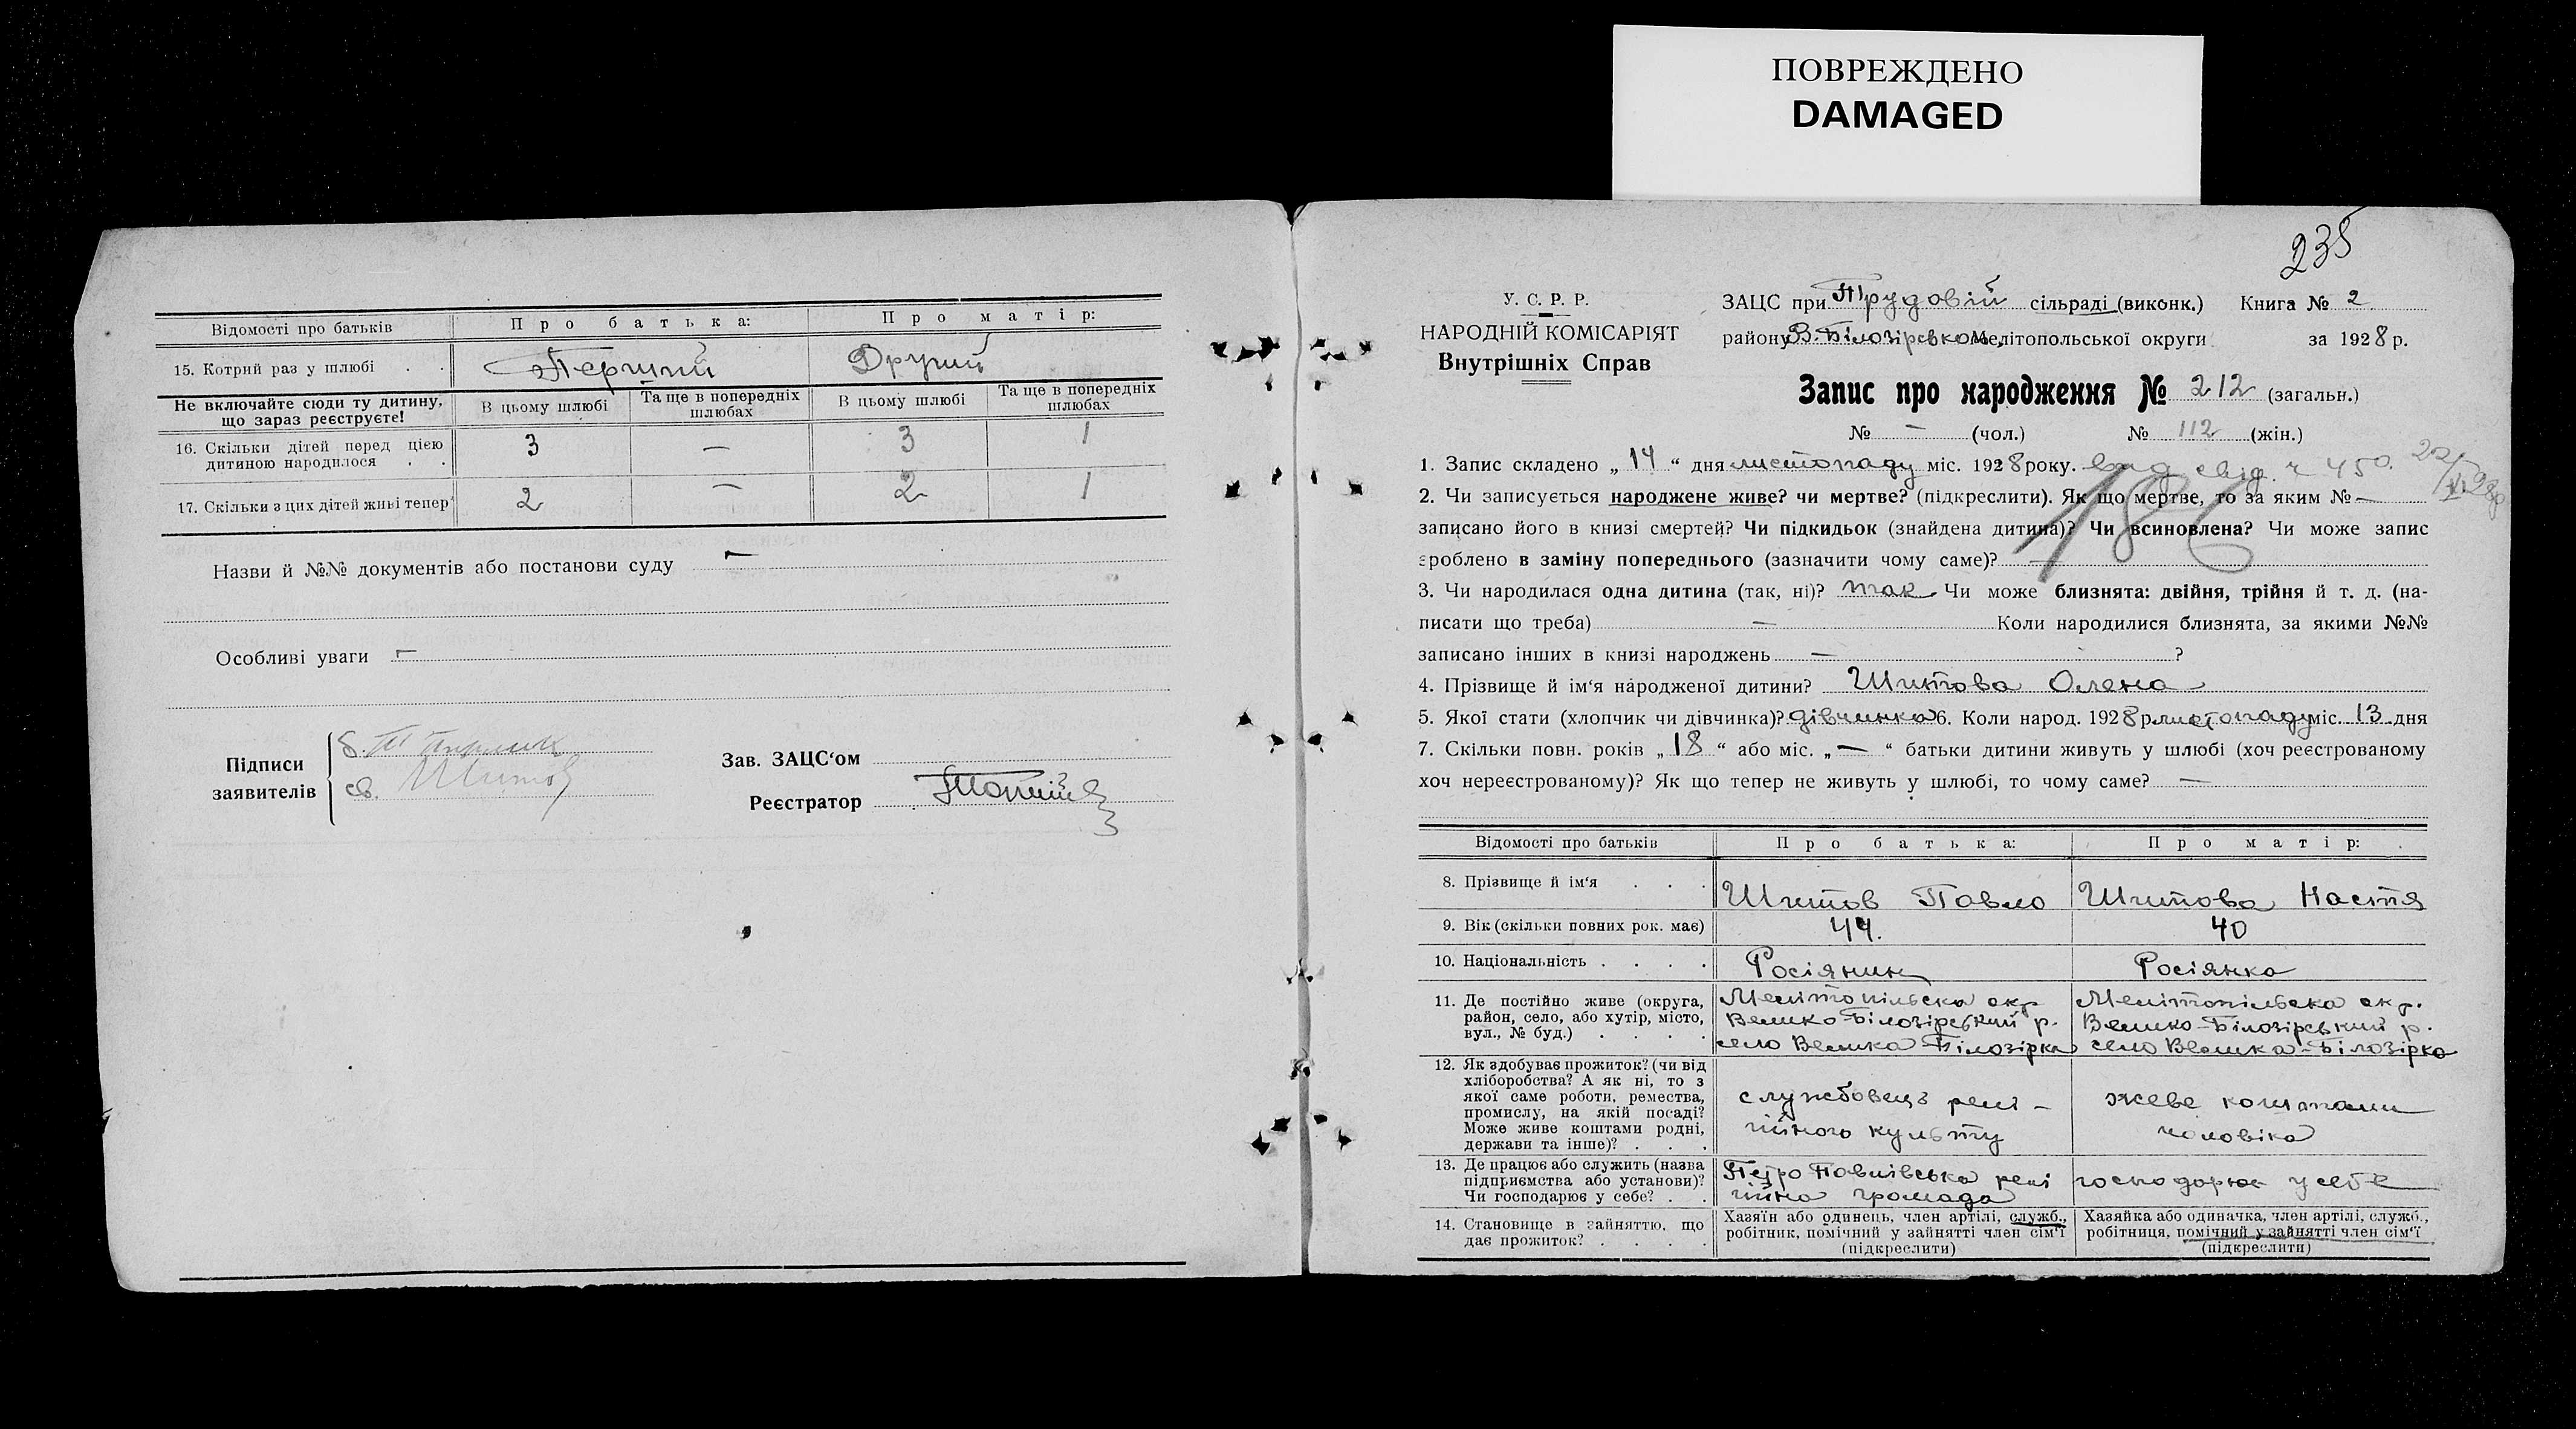 ПОВРЕЖДЕНО
DAMAGED
Відомості про батьків Про батька: Про матір:
15. Котрий раз у шлюбі . . Перший Другий
Не включайте сюди ту дитину, що зараз реєструєте! В цьому шлюбі Та ще в попередніх шлюбах В цьому шлюбі Та ще в попередніх шлюбах
16. Скільки дітей перед цією дитиною народилося . . 3 — 3 1
17. Скільки з цих дітей живі тепер 2 — 2 1
Назви й №№ документів або постанови суду —
Особливі уваги —
Підписи заявителів
б.
св. Шитов
Зав. ЗАЦС‘ом
Реєстратор
235
У. С. Р. Р.
НАРОДНІЙ КОМІСАРІЯТ
Внутрішніх Справ
ЗАЦС при Трудовій сільраді (виконк.) Книга № 2
району В.-Білозірськом Мелітопольської округи за 1928 р.
Запис про народження № 212 (загальн.)
№ — (чол.) № 112 (жін.)
1. Запис складено „14“ дня листопаду міс. 1928 року.
2. Чи записується народжене живе? чи мертве? (підкреслити). Як що мертве, то за яким № —
записано його в книзі смертей? Чи підкидьок (знайдена дитина)? Чи всиновлена? Чи може запис
зроблено в заміну попереднього (зазначити чому саме)? —
3. Чи народилася одна дитина (так, ні)? так Чи може близнята: двійня, трійня й т. д. (на-
писати що треба) — Коли народилися близнята, за якими №№
записано інших в книзі народжень — ?
4. Прізвище й ім‘я народженої дитини? Шитова Олена
5. Якої стати (хлопчик чи дівчинка)? дівчинка 6. Коли народ. 1928 р. листопаду міс. 13 дня
7. Скільки повн. років „18“ або міс. „—“ батьки дитини живуть у шлюбі (хоч реєстрованому
хоч нереєстрованому)? Як що тепер не живуть у шлюбі, то чому саме? —
Відомості про батьків Про батька: Про матір:
8. Прізвище й ім‘я . . . Шитов Павло Шитова Настя
9. Вік (скільки повних рок. має) 44. 40
10. Національність . . . . Росіянин Росіянка
11. Де постійно живе (округа, район, село, або хутір, місто, вул., № буд.) . . . .
Мелітопільска окр Велико-Білозірський р. село Велика Білозірка
Мелітопільска окр. Велико-Білозірський р. село Велика-Білозірка
12. Як здобуває прожиток? (чи від хліборобства? А як ні, то з якої саме роботи, ремества, промислу, на якій посаді? Може живе коштами родні, держави та інше)? . . .
службовець релі-гійного культу
живе коштами чоловіка
13. Де працює або служить (назва підприємства або установи)? Чи господарює у себе? . .
Петро Павлівська релі гійна громада
господорює у себе
14. Становище в зайняттю, що дає прожиток? . . . .
Хазяїн або одинець, член артілі, служб., робітник, помічний у зайнятті член сім‘ї (підкреслити)
Хазяйка або одиначка, член артілі, служб., робітниця, помічний у зайнятті член сім‘ї (підкреслити)